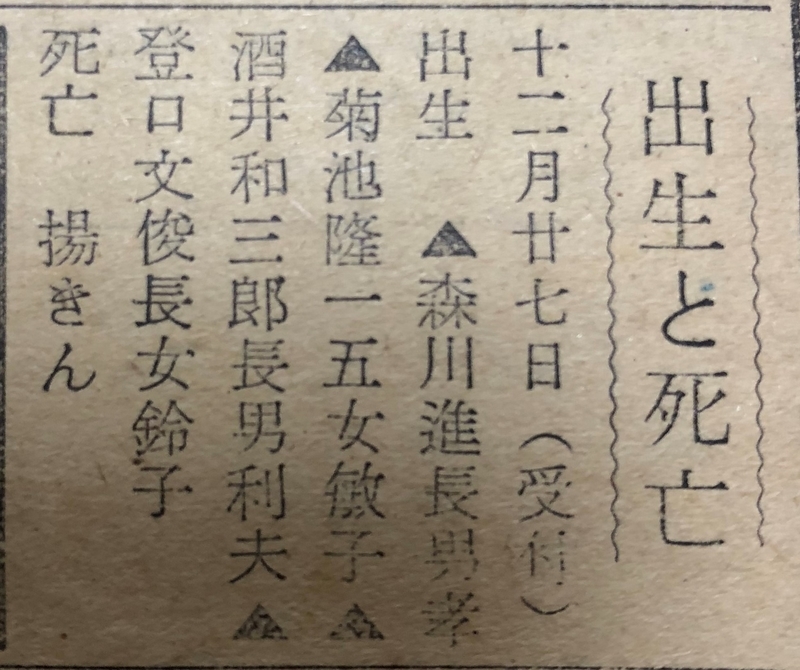 出生と死亡
十二月廿七日（受付）
出生　▲森川進長男孝
▲菊池隆一五女敏子▲
酒井和三郎長男利夫▲
登口文俊長女鈴子
死亡　揚きん